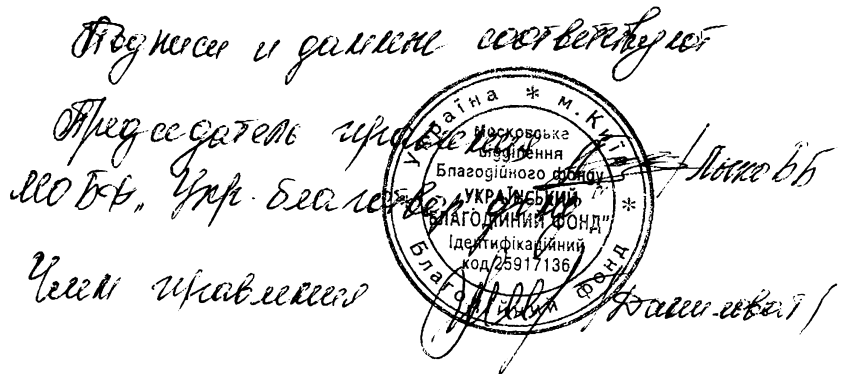 Подписи и данные соответствуют
Председатель правления
МО БФ „Укр. благотвор. фонд"
/Лыко В Б
Член правления
Україна * м. Київ *
Благодійний фонд
Московське
відділення
Благодійного фонду
"УКРАЇНСЬКИЙ
БЛАГОДІЙНИЙ ФОНД"
Ідентифікаційний
код 25917136